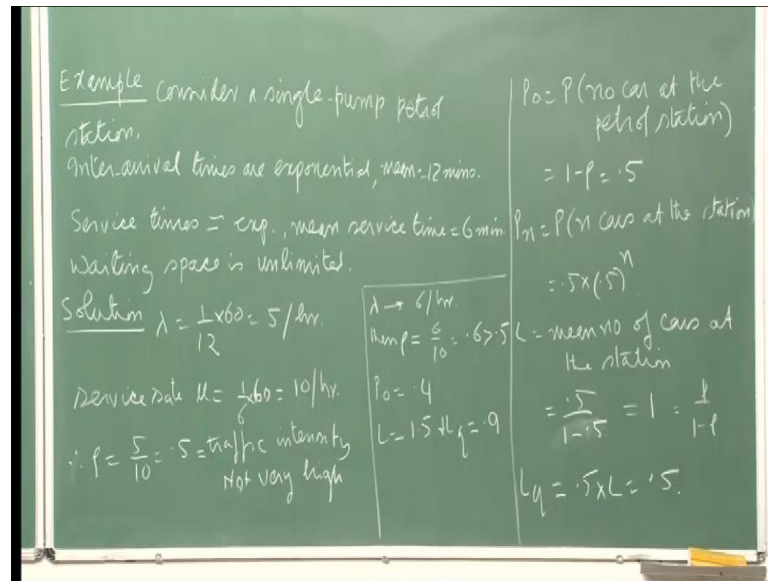 Example Consider a single-pump petrol
station.
Inter-arrival times are exponential, mean = 12 mins.
Service times = exp., mean service time = 6 min
Waiting space is unlimited.
Solution λ = 1/12 × 60 = 5/hr.
Service rate μ = 1/6 60 = 10/hr.
∴ ρ = 5/10 = .5 = traffic intensity
Not very high
λ → 6/hr.
then ρ = 6/10 = .6 > .5
P0 = .4
L = 1.5 Lq = .9
P0 = P(no car at the
petrol station)
= 1-ρ = .5
Pn = P(n cars at the station)
= .5×(.5)^n
L = mean no of cars at
the station
= .5/1-.5 = 1 = ρ/1-ρ
Lq = .5×L = .5.